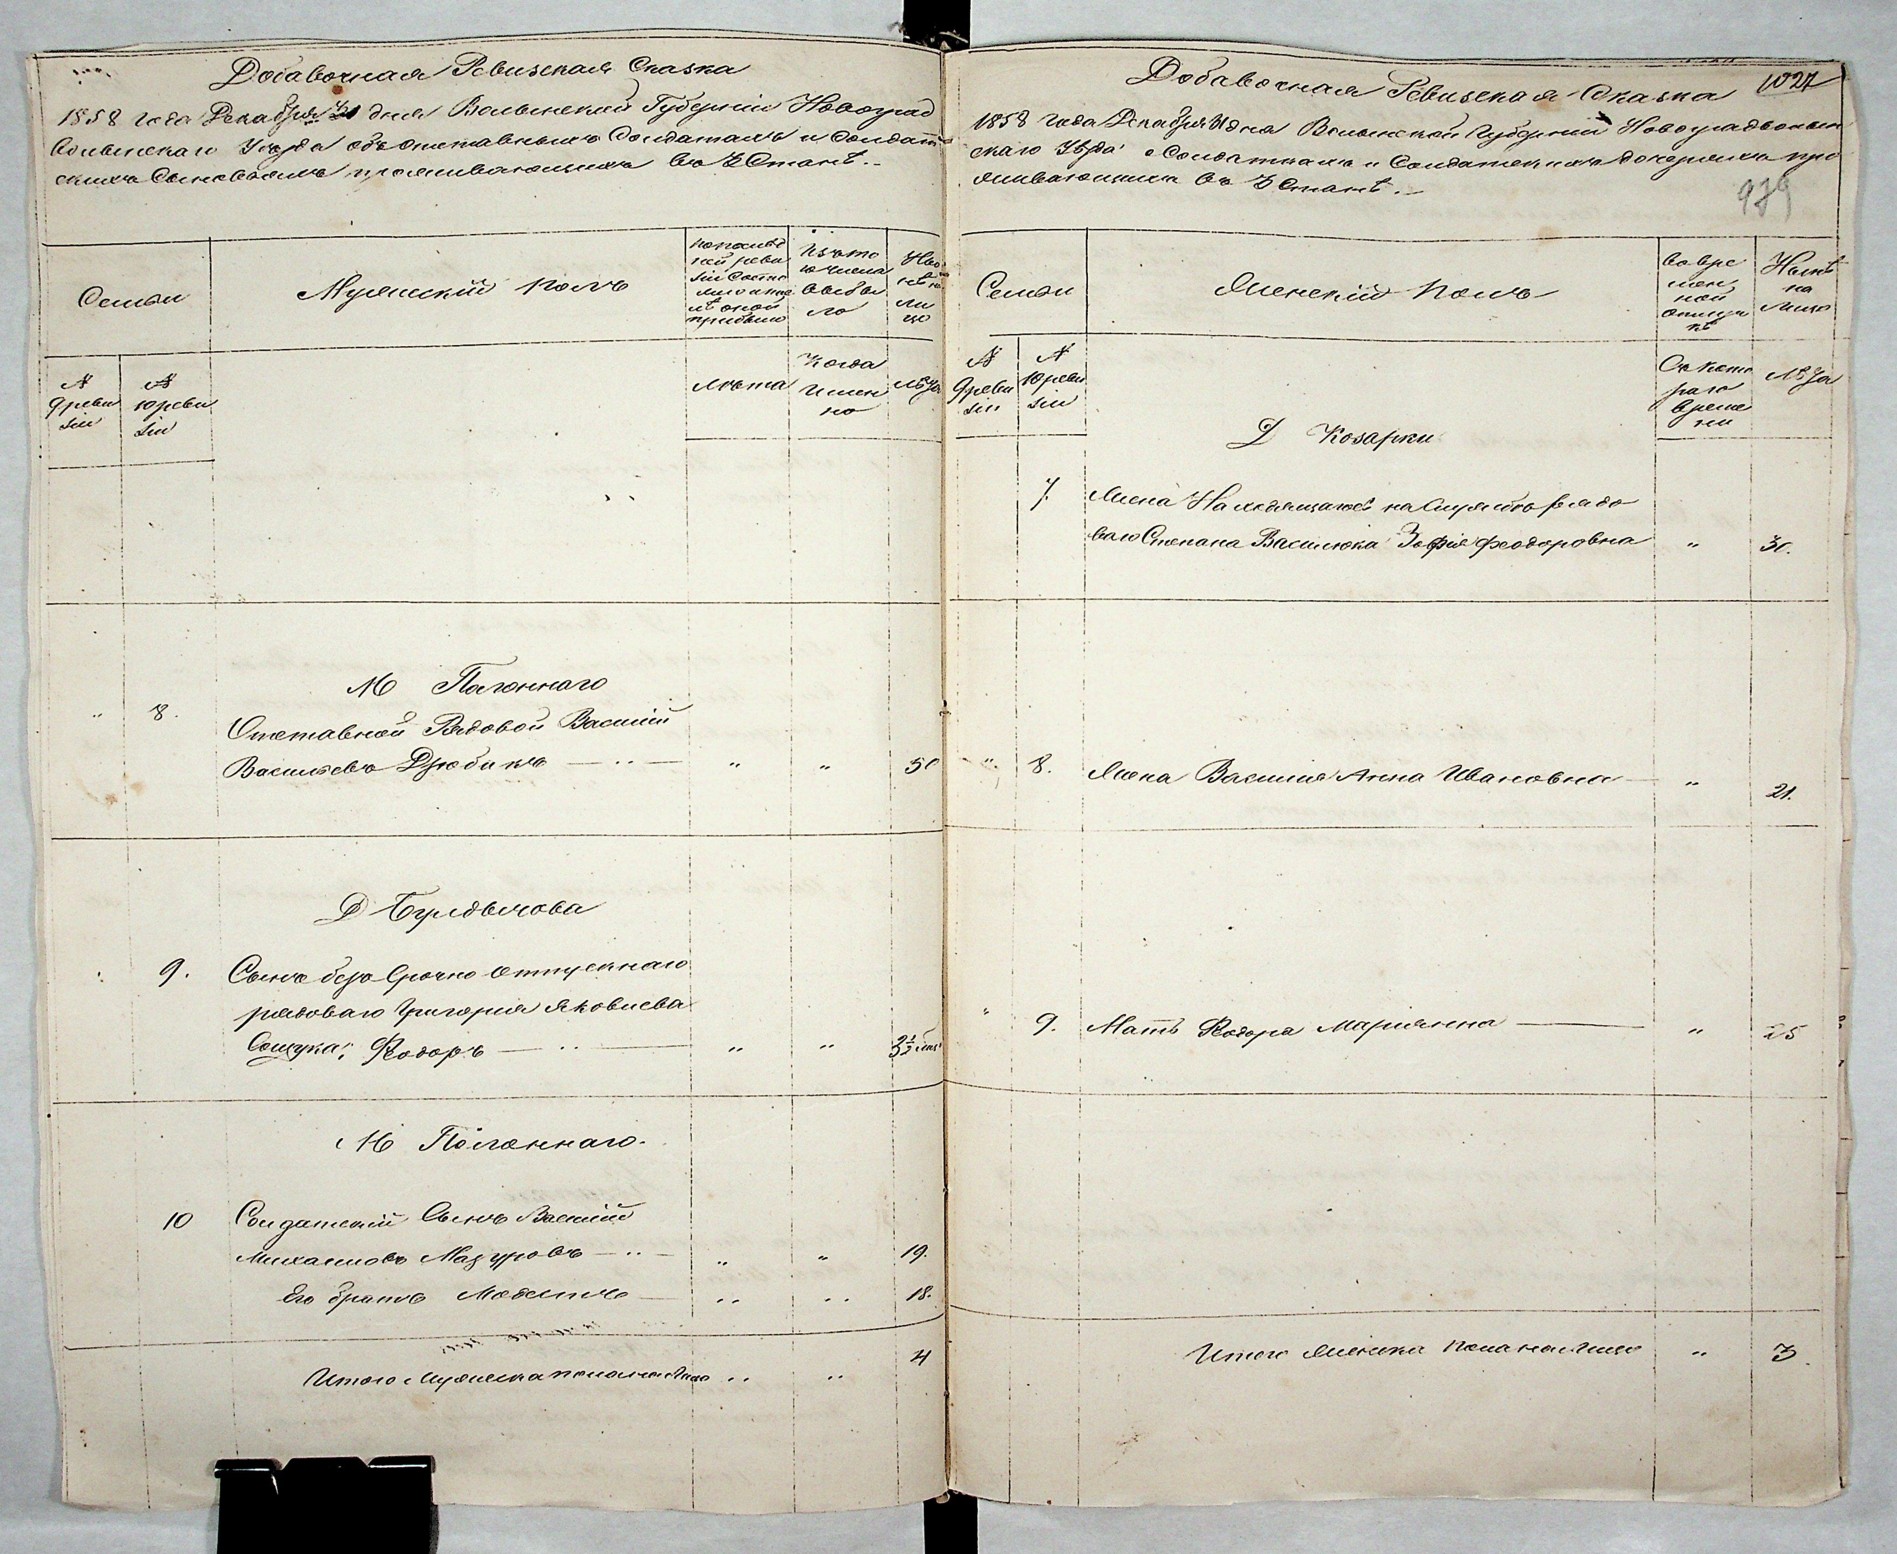 Добавочная Ревизская Сказка
1858 года Декабря дня Волынской Губерніи Новоград
Волынскаго Уезда объ отставныхъ Солдатахъ и Солдат
скихъ Сыновьяхъ проживающихъ въ 3 Станѣ.
Семьи
Мужескій полъ
по послѣд
ней реви
зіи состо
яло и пос
лѣ оной
прибыло
Изъ то
го числа
выбы
ло
Ны
нѣ на
ли
цо
№
9 реви
зіи
№
10 реви
зіи
Лѣта
Когда
имен
но
Лѣта
М Полоннаго
" 8. Отставной Рядовой Василій
Васильевъ Дзюбикъ " " 50
Д Булдычова
9. Сынъ безсрочно отпускнаго
рядоваго Григорія Яковлева
Сощука, Ѳедоръ " " 3½
М Полоннаго.
10 Солдатскій Сынъ Василій
Михайловъ Мазуровъ " " 19.
Его братъ " " 18.
Итого мужеска пола на лицо " " 4
Добавочная Ревизская Сказка 1027
1858 года Декабря дня Волынской Губерніи Новоградволын
скаго Уѣзда о Солдаткахъ и Солдатскихъ дочеряхъ про
живающихъ въ 3 Станѣ.
979
Семьи
Женскій полъ
Во вре
мен
ной
отлуч
кѣ
Нынѣ
на
Лицо
№
9 реви
зіи
№
10 реви
зіи
Съ кото
раго
време
ни
Лѣта
Д Козарки
7. Жена Находящагося на службѣ рядо
ваго Степана Василюка Зофія Феодоровна " 30.
" 8. Жена Василія Анна Ивановна " 21.
" 9. Мать Ѳедора Маріянна " 25
Итого женска пола на лицо " 3.